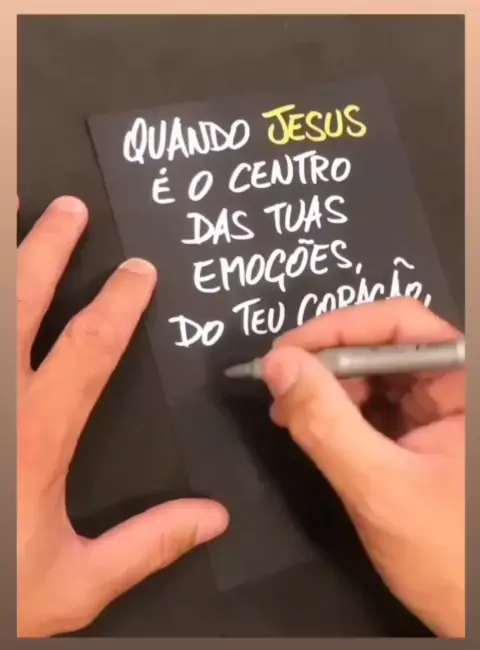 QUANDO JESUS
É O CENTRO
DAS TUAS
EMOÇÕES,
DO TEU CORAÇÃO,